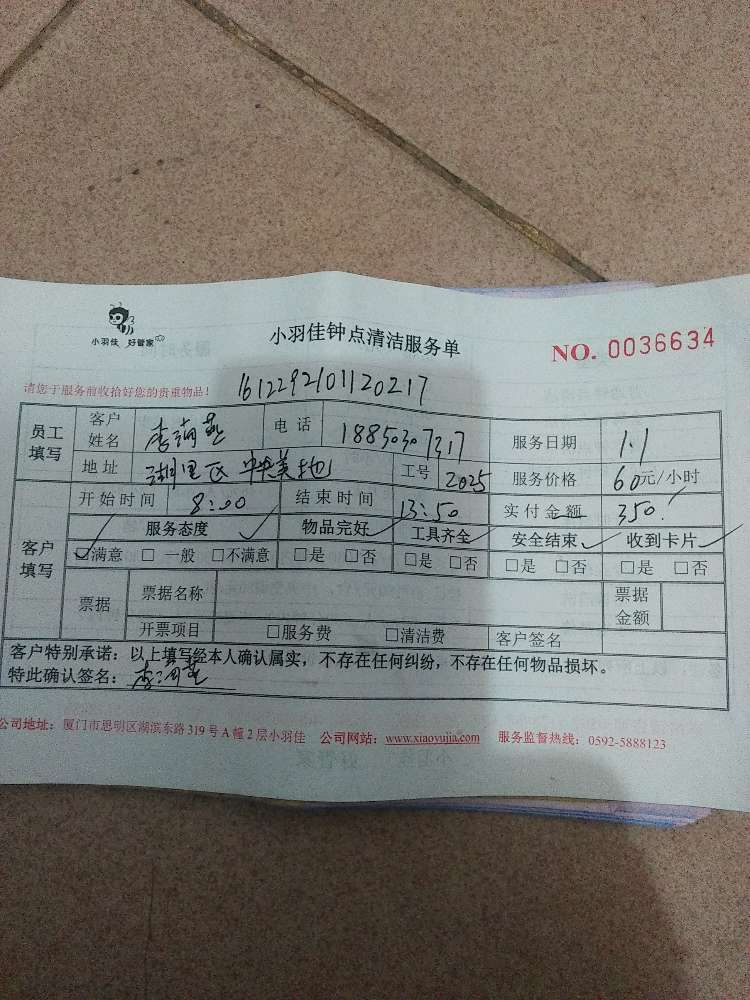 小羽佳 好管家
小羽佳钟点清洁服务单
NO. 0036634
请您于服务前收拾好您的贵重物品！ 1612292101120217
员工填写 客户姓名 李 电话 18850307317 服务日期 1.1
地址 湖里区 中央美地 工号 2025 服务价格 60元/小时
客户填写 开始时间 8:00 结束时间 13:50 实付金额 350.
服务态度 ✓ 物品完好 ✓ 工具齐全 ✓ 安全结束 ✓ 收到卡片 ✓
☑满意 □ 一般 □不满意 □是 □否 □是 □否 □是 □否 □是 □否
票据 票据名称 票据金额
开票项目 □服务费 □清洁费 客户签名
客户特别承诺：以上填写经本人确认属实，不存在任何纠纷，不存在任何物品损坏。
特此确认签名：李
公司地址：厦门市思明区湖滨东路319号A幢2层小羽佳 公司网站：www.xiaoyujia.com 服务监督热线：0592-5888123